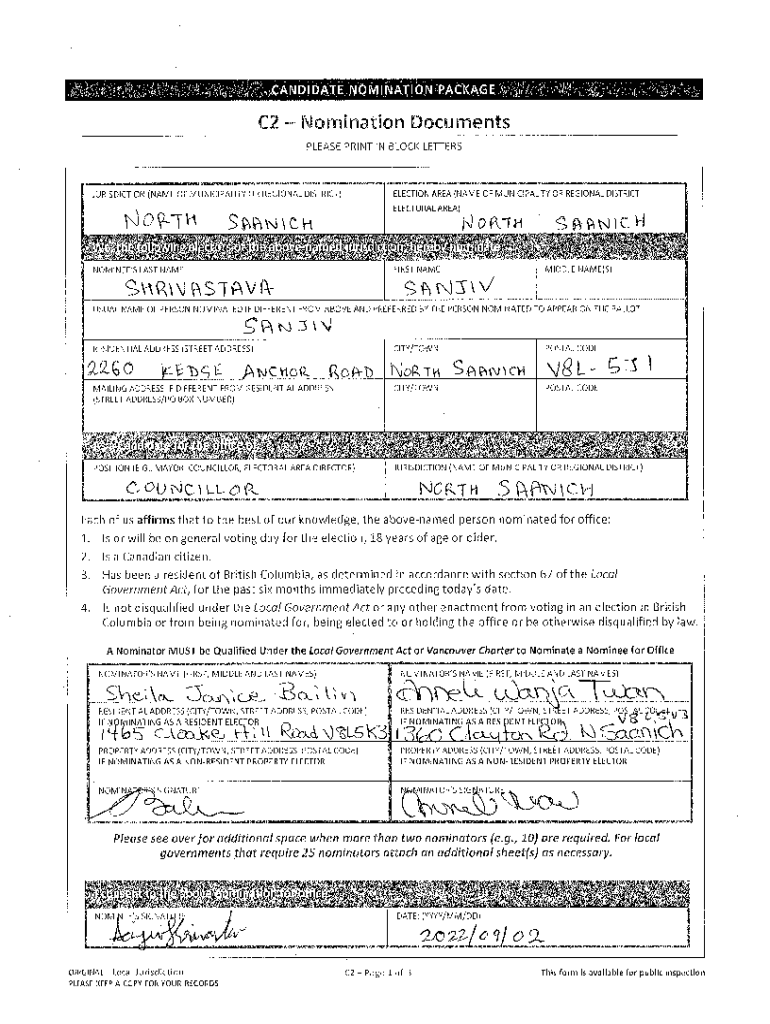 CANDIDATE NOMINATION PACKAGE
C2 – Nomination Documents
PLEASE PRINT IN BLOCK LETTERS
JURISDICTION (NAME OF MUNICIPALITY OR REGIONAL DISTRICT)
NORTH SAANICH
ELECTION AREA (NAME OF MUNICIPALITY OR REGIONAL DISTRICT
ELECTORAL AREA)
NORTH SAANICH
We, the following electors of the above-named jurisdiction, hereby nominate:
NOMINEE'S LAST NAME
SHRIVASTAVA
FIRST NAME
SANJIV
MIDDLE NAME(S)
USUAL NAME OF PERSON NOMINATED IF DIFFERENT FROM ABOVE AND PREFERRED BY THE PERSON NOMINATED TO APPEAR ON THE BALLOT
SANJIV
RESIDENTIAL ADDRESS (STREET ADDRESS)
2260 KEDGE ANCHOR ROAD
CITY/TOWN
NORTH SAANICH
POSTAL CODE
V8L-5J1
MAILING ADDRESS IF DIFFERENT FROM RESIDENTIAL ADDRESS
(STREET ADDRESS/PO BOX NUMBER)
CITY/TOWN
POSTAL CODE
POSITION (E.G., MAYOR, COUNCILLOR, ELECTORAL AREA DIRECTOR)
COUNCILLOR
JURISDICTION (NAME OF MUNICIPALITY OR REGIONAL DISTRICT)
NORTH SAANICH
Each of us affirms that to the best of our knowledge, the above-named person nominated for office:
1. Is or will be on general voting day for the election, 18 years of age or older.
2. Is a Canadian citizen.
3. Has been a resident of British Columbia, as determined in accordance with section 67 of the Local
Government Act, for the past six months immediately preceding today's date.
4. Is not disqualified under the Local Government Act or any other enactment from voting in an election in British
Columbia or from being nominated for, being elected to or holding the office or be otherwise disqualified by law.
A Nominator MUST be Qualified Under the Local Government Act or Vancouver Charter to Nominate a Nominee for Office
NOMINATOR'S NAME (FIRST, MIDDLE AND LAST NAMES)
Sheila Janice Bailin
RESIDENTIAL ADDRESS (CITY/TOWN, STREET ADDRESS, POSTAL CODE)
IF NOMINATING AS A RESIDENT ELECTOR
1465 Cloake Hill Road V8L5K3
PROPERTY ADDRESS (CITY/TOWN, STREET ADDRESS, POSTAL CODE)
IF NOMINATING AS A NON-RESIDENT PROPERTY ELECTOR
NOMINATOR'S SIGNATURE
NOMINATOR'S NAME (FIRST, MIDDLE AND LAST NAMES)
Anneli Wanja
RESIDENTIAL ADDRESS (CITY/TOWN, STREET ADDRESS, POSTAL CODE)
IF NOMINATING AS A RESIDENT ELECTOR
1360 Clayton Rd, N Saanich
PROPERTY ADDRESS (CITY/TOWN, STREET ADDRESS, POSTAL CODE)
IF NOMINATING AS A NON-RESIDENT PROPERTY ELECTOR
NOMINATOR'S SIGNATURE
Please see over for additional space when more than two nominators (e.g., 10) are required. For local
governments that require 25 nominators attach an additional sheet(s) as necessary.
I consent to the above nomination for office
NOMINEE'S SIGNATURE
DATE: (YYYY/MM/DD)
2022/09/02
ORIGINAL – Local Jurisdiction
PLEASE KEEP A COPY FOR YOUR RECORDS
C2 – Page 1 of 3
This form is available for public inspection